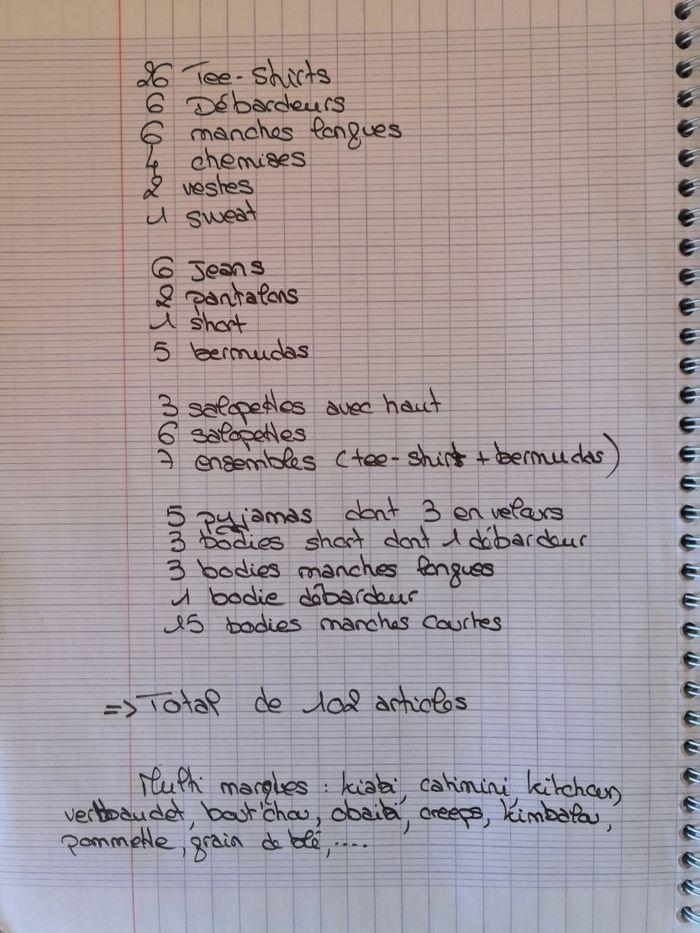 26 Tee-shirts
6 Débardeurs
6 manches longues
4 chemises
2 vestes
1 sweat
6 Jeans
2 pantalons
1 short
5 bermudas
3 salopettes avec haut
6 salopettes
7 ensembles (tee-shirt + bermudas)
5 pyjamas dont 3 en velours
3 bodies short dont 1 débardeur
3 bodies manches longues
1 bodie débardeur
15 bodies manches courtes
=> Total de 102 articles
Multi marques : kiabi, catimini, kitchoun,
vertbaudet, bout'chou, obaibi, creeps, kimbaloo,
pommette, grain de blé, ....